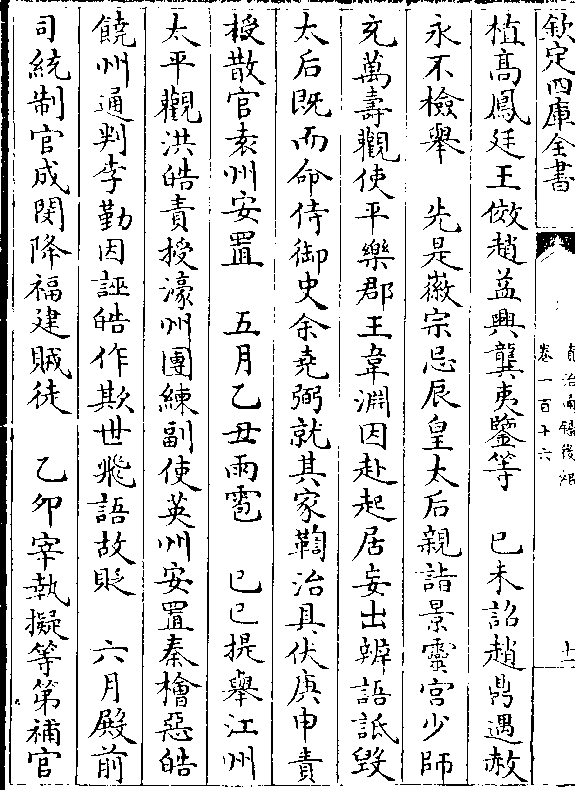 欽定四庫全書
卷一百十六
植高鳳廷王傚趙益興龔夷鑒等　已未詔趙鼎遇赦
永不檢舉　先是徽宗忌辰皇太后親詣景靈宫少師
充萬壽觀使平樂郡王韋淵因赴起居妄出辨語詆毀
太后既而命侍御史余堯弼就其家鞫治具伏庚申責
授散官袁州安置　五月乙丑雨雹　已巳提舉江州
太平觀洪皓責授濠州團練副使英州安置秦檜惡皓
饒州通判李勤因誣皓作欺世飛語故貶　六月殿前
司統制官成閔降福建賊徒　乙卯宰執擬等第補官